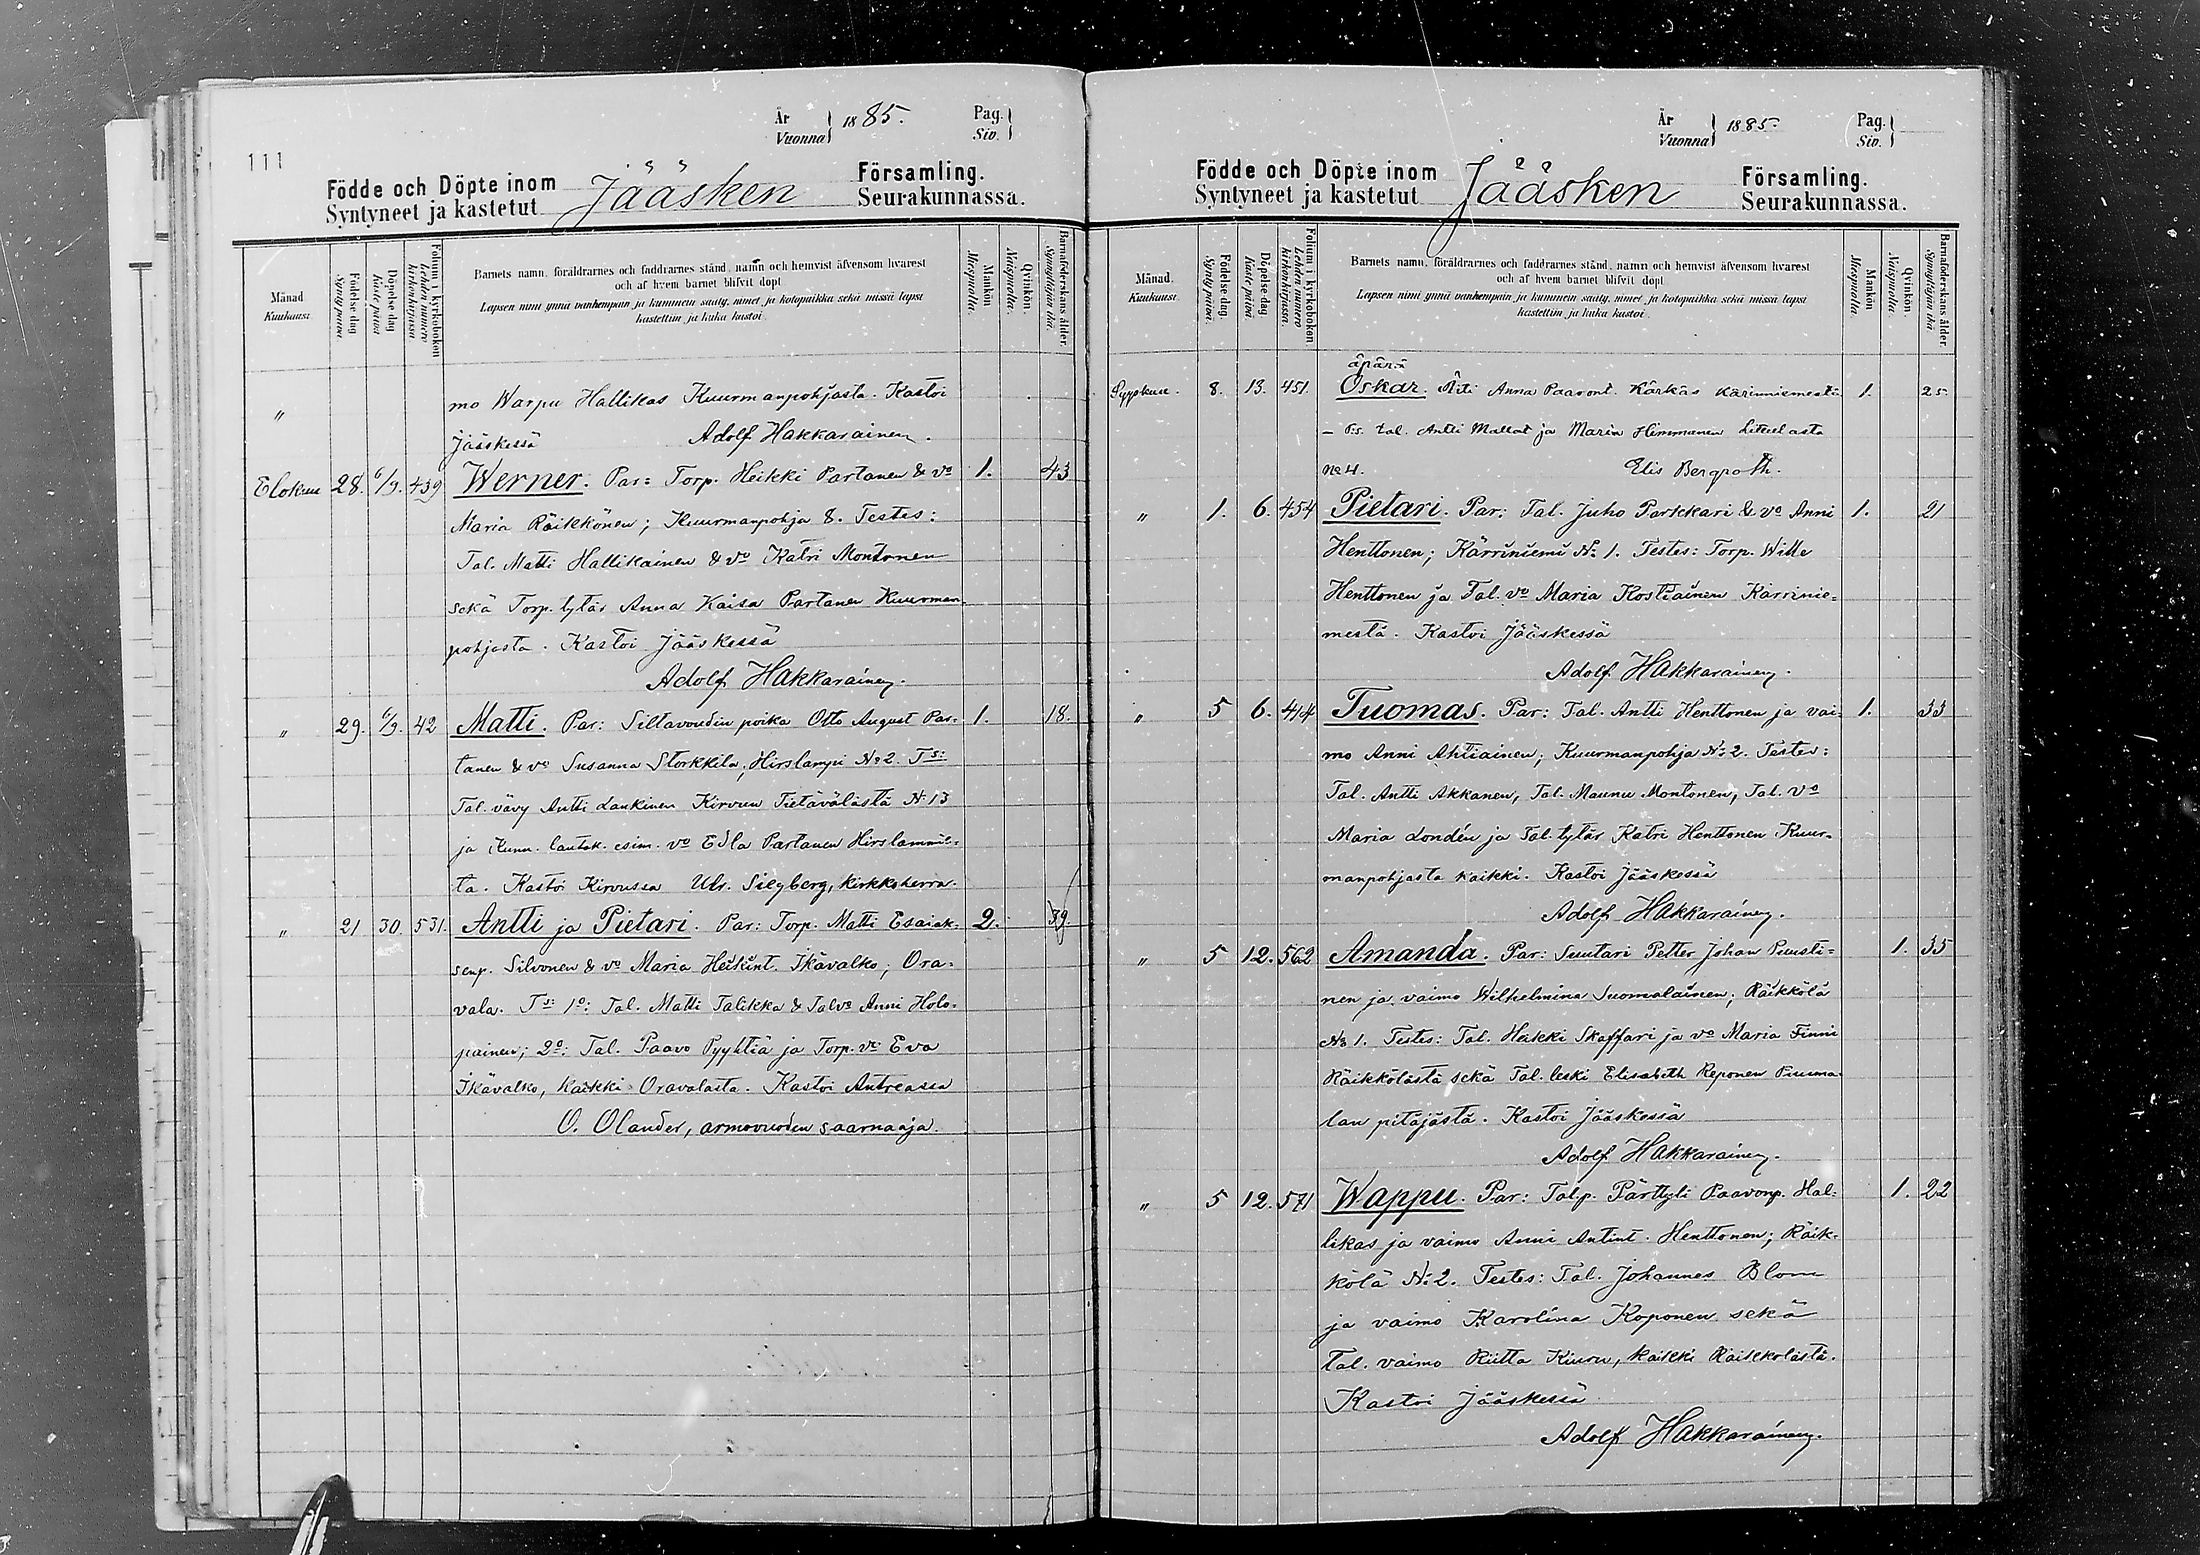 111
År Vuonna } 1885. Pag. Siv. }
Födde och Döpte inom Jääsken Församling.
Syntyneet ja kastetut Seurakunnassa.
Månad Kuukausi.
Födelse dag Synty päivä.
Döpelse dag Kaste päivä.
Folium i kyrkoboken Lehden numero kirkonkirjassa.
Barnets namn, föräldrarnes och faddrarnes stånd, namn och hemvist äfvensom hvarest
och af hvem barnet blifvit döpt
Lapsen nimi ynnä vanhempain ja kummein sääty, nimet ja kotopaikka sekä missä lapsi
kastettiin ja kuka kastoi.
Mankön Miespuolta.
Qvinkön. Naispuolta.
Barnaföderskans ålder. Synnyttäjän ikä.
" mo Warpu Hallikas Kuurmanpohjasta. Kastoi
Jääskessä Adolf Hakkarainen.
Elokuu 28. 6/9. 439 Werner. Par: Torp. Heikki Partanen & vo 1. 43
Maria Räikkönen; Kuurmanpohja 8. Testes:
Tal. Matti Hallikainen & vo Katri Montonen
sekä Torp. tytär Anna Kaisa Partanen Kuurman-
pohjasta. Kastoi Jääskessä
Adolf Hakkarainen.
" 29. 6/9. 42 Matti. Par: Siltavoudin poika Otto August Par- 1. 18.
tanen & vo Susanna Storkkila; Hirslampi No 2. Ts:
Tal. vävy Antti Lankinen Kirvun Tietävälästä N. 13
ja Kunn. lautak. esim. vo Edla Partanen Hirslammil-
ta. Kastoi Kirvussa Ulr. Siegberg, Kirkkoherra.
" 21 30 531. Antti ja Pietari. Par: Torp. Matti Esaiak- 2. 39.
senp. Silvonen & vo Maria Heikint. Ikävalko; Ora-
vala. Ts: 1o: Tal. Matti Talikka & Tal vo Anni Holo-
painen; 2o: Tal. Paavo Pyyhtiä ja Torp. vo Eva
Ikävalko, kaikki Oravalasta. Kastoi Antreassa
O. Olander, armovuoden saarnaaja.
År Vuonna } 1885. Pag. Siv. }
Födde och Döpte inom Jääsken Församling.
Syntyneet ja kastetut Seurakunnassa.
Månad Kuukausi.
Födelse dag. Synty päivä.
Döpelse dag Kaste päivä
Folium i kyrkoboken Lehden numero kirkonkirjassa.
Barnets namn, föräldrarnes och faddrarnes stånd, namn och hemvist äfvensom hvarest
och af hvem barnet blifvit döpt
Lapsen nimi ynnä vanhempain ja kummein sääty, nimet ja kotopaikka sekä missä lapsi
kastettiin ja kuka kastoi.
Mankön Miespuolta.
Qvinkön. Naispuolta.
Barnaföderskans ålder. Synnyttäjän ikä.
äpärä
Syyskuu. 8. 13. 451. Oskar. Äiti Anna Paavont. Kärkäs Kärinniemestä 1. 25.
– Ts. tal. Antti Mattat ja Maria Himmanen
No 4. Elis Bergroth.
" 1. 6. 454 Pietari. Par: Tal. Juho Parkkari & vo Anni 1. 21
Henttonen; Kärriniemi No 1. Testes: Torp. Wille
Henttonen ja Tal. vo Maria Kostiainen Kärrinie-
mestä. Kastoi Jääskessä
Adolf Hakkarainen.
" 5 6. 414 Tuomas. Par: Tal. Antti Henttonen ja vai- 1. 33
mo Anni Ahtiainen; Kuurmanpohja No 2. Testes:
Tal. Antti Akkanen, Tal. Maunu Montonen, Tal. vo
Maria Londén ja Tal. tytär Katri Henttonen Kuur-
manpohjasta kaikki. Kastoi Jääskessä
Adolf Hakkarainen.
" 5 12. 562 Amanda. Par: Suutari Petter Johan Puusti- 1. 35
nen ja vaimo Wilhelmina Suomalainen; Räikkölä
No 1. Testes: Tal. Heikki Skaffari ja vo Maria Finni
Räikkölästä sekä Tal. leski Elisabeth Reponen Puuma-
lan pitäjästä. Kastoi Jääskessä
Adolf Hakkarainen.
" 5 12. 571 Wappu. Par: Talp. Pärttyli Paavonp. Hal- 1. 22
likas ja vaimo Anni Antint. Henttonen; Räik-
kölä No 2. Testes: Tal. Johannes Blom
ja vaimo Karolina Koponen sekä
Tal. vaimo Riitta Kiuru, kaikki Räikkölästä.
Kastoi Jääskessä
Adolf Hakkarainen.